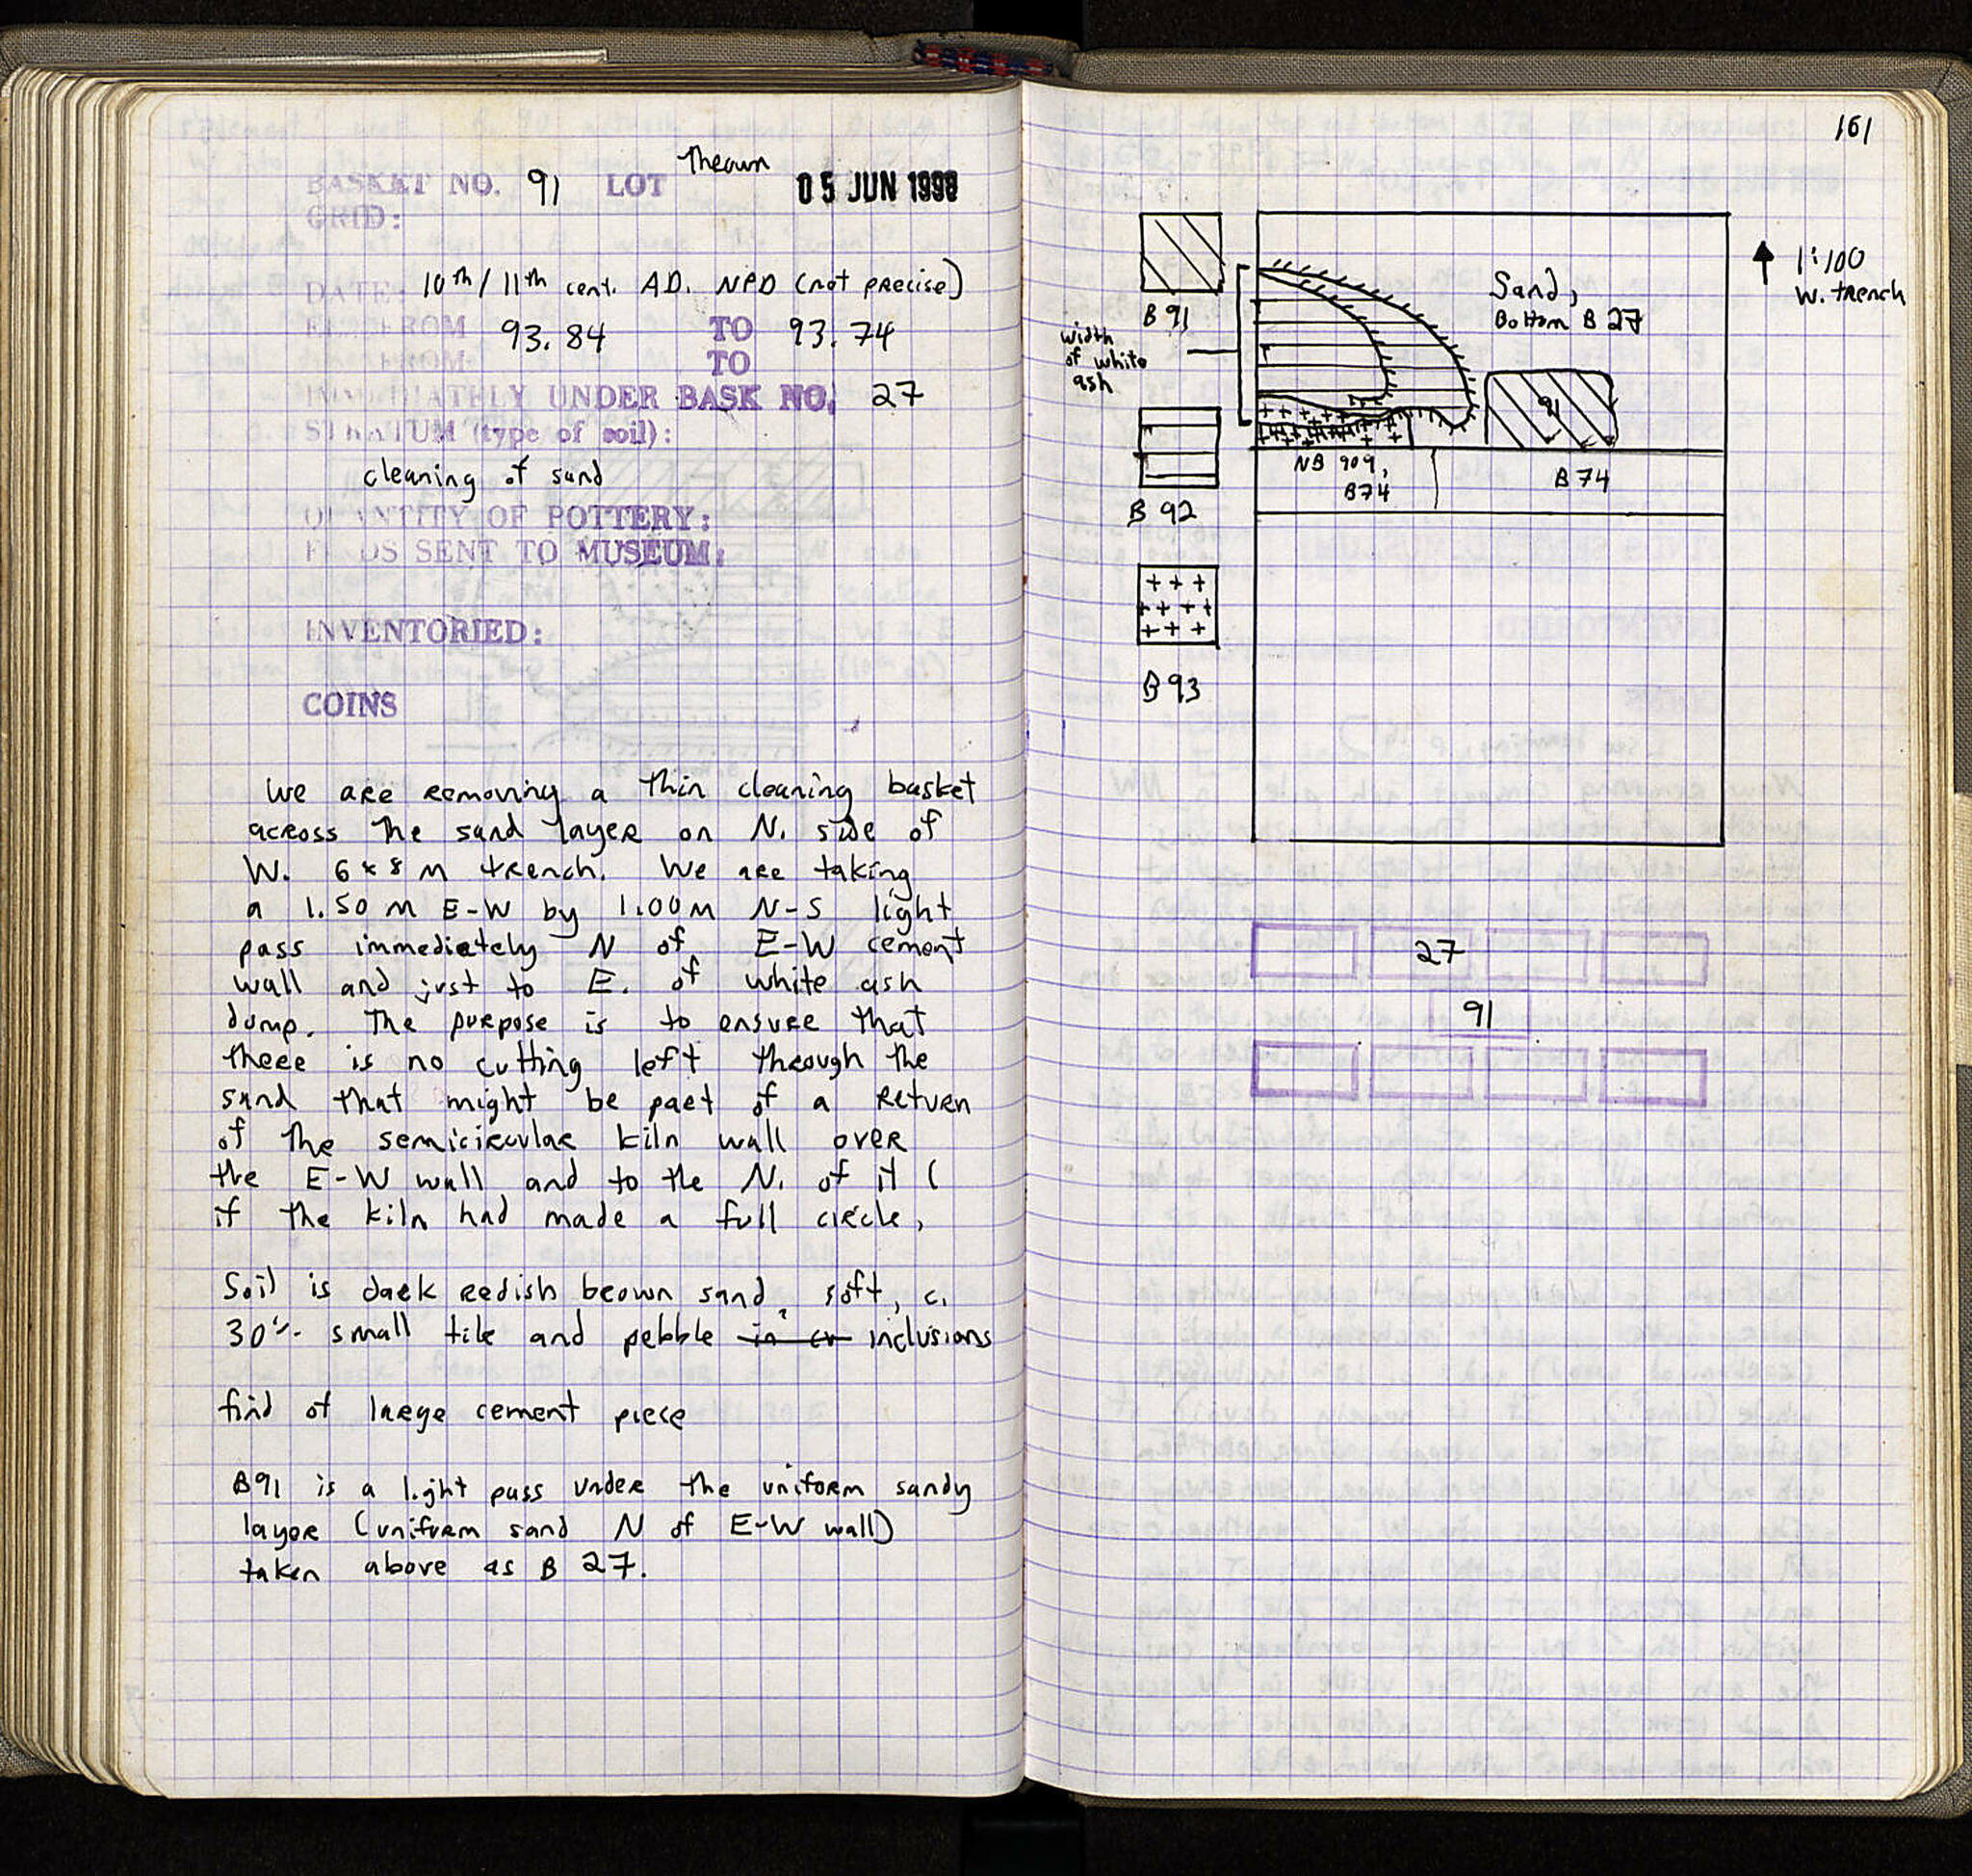 Thrown
BASKET NO. 91 LOT
05 JUN 1998
GRID:
DATE: 10th / 11th cent. AD. NPD (not precise)
FROM 93.84 TO 93.74
FROM TO
IMMEDIATELY UNDER BASK NO. 27
STRATUM (type of soil):
cleaning of sand
QUANTITY OF POTTERY:
FINDS SENT TO MUSEUM:
INVENTORIED:
COINS
We are removing a thin cleaning basket
across the sand layer on N. side of
W. 6 x 8 m trench. We are taking
a 1.50 m E-W by 1.00m N-S light
pass immediately N of E-W cement
wall and just to E. of white ash
dump. The purpose is to ensure that
there is no cutting left through the
sand that might be part of a return
of the semicircular kiln wall over
the E-W wall and to the N. of it (
if the kiln had made a full circle,
Soil is dark redish brown sand, soft, c.
30%. small tile and pebble inclusions
find of large cement piece
B91 is a light pass under the uniform sandy
layer (uniform sand N of E-W wall)
taken above as B 27.
161
B 91
width
of white
ash
B 92
B 93
Sand,
Bottom B 27
1:100
W. trench
91
NB 909,
B74
B 74
27
91